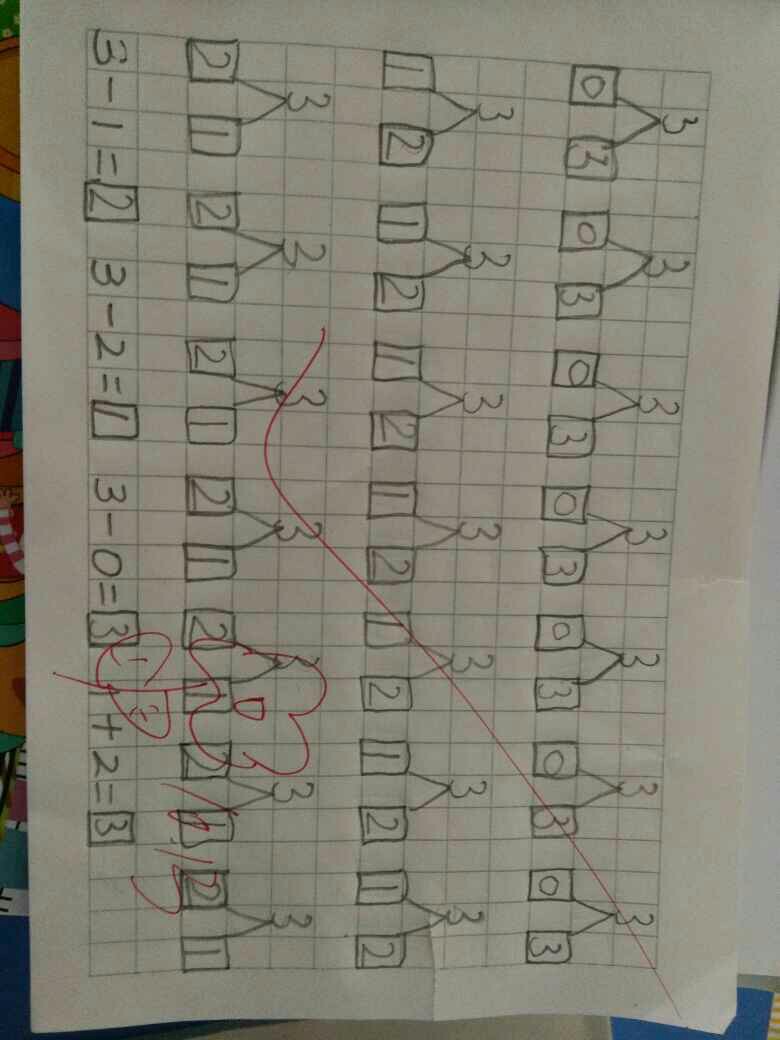 3 3 3 3 3 3 3
0 3 0 3 0 3 0 3 0 3 0 3 0 3
3 3 3 3 3 3 3
1 2 1 2 1 2 1 2 1 2 1 2 1 2
3 3 3 3 3 3 3
2 1 2 1 2 1 2 1 2 1 2 1 2 1
3-1=2 3-2=1 3-0=3 1+2=3